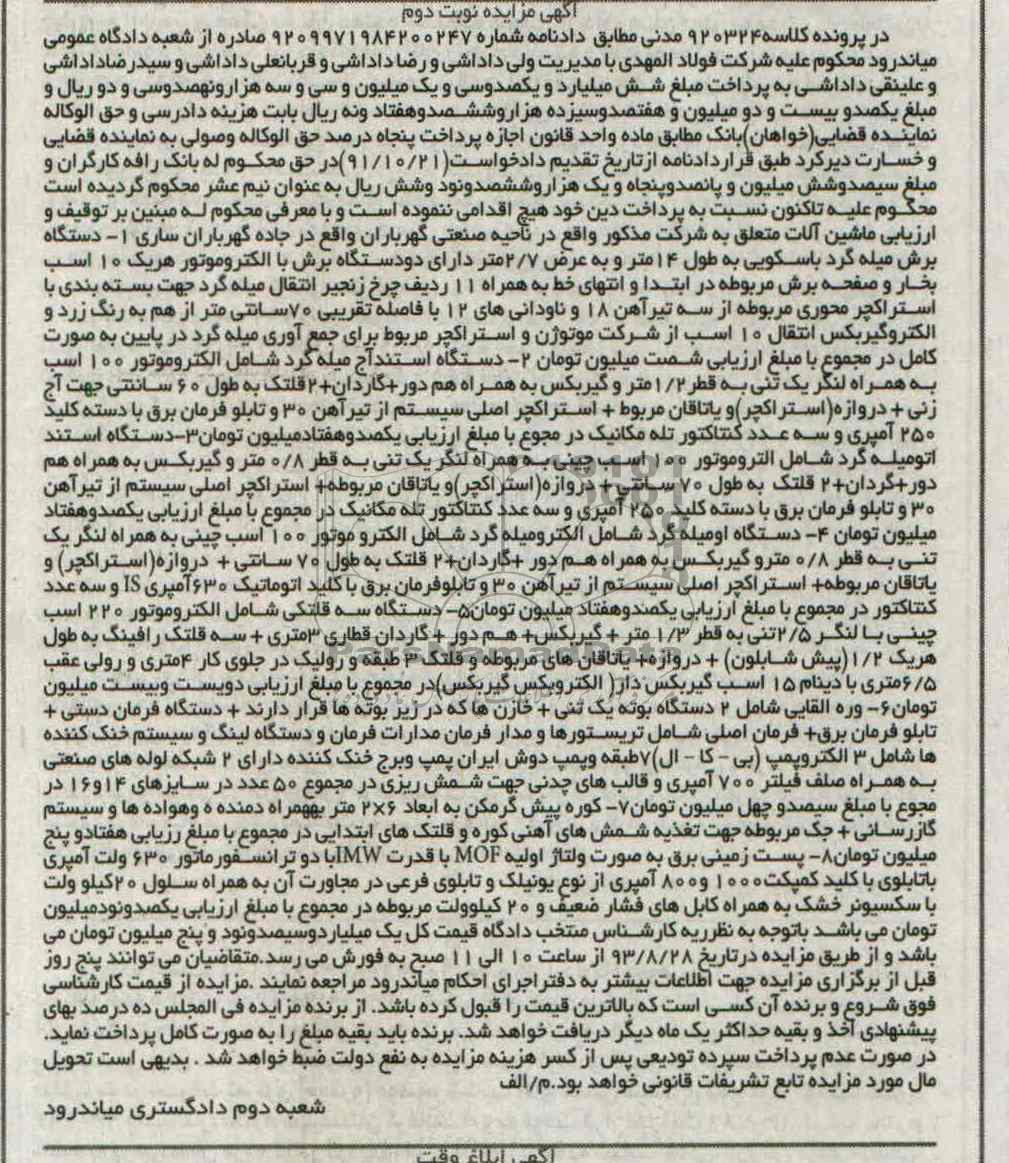 آگهی مزایده نوبت دوم
در پرونده کلاسه۹۲۰۳۲۴ مدنی مطابق دادنامه شماره ۹۲۰۹۹۷۱۹۸۴۲۰۰۲۴۷ صادره از شعبه دادگاه عمومی
میاندرود محکوم علیه شرکت فولاد المهدی با مدیریت ولی داداشی و رضا داداشی و قربانعلی داداشی و سیدرضاداداشی
و علینقی داداشی به پرداخت مبلغ شش میلیارد و یکصدوسی و یک میلیون و سی و سه هزارونهصدوسی و دو ریال و
مبلغ یکصدو بیست و دو میلیون و هفتصدوسیزده هزاروششصدوهفتاد ونه ریال بابت هزینه دادرسی و حق الوکاله
نماینده قضایی(خواهان)بانک مطابق ماده واحد قانون اجازه پرداخت پنجاه درصد حق الوکاله وصولی به نماینده قضایی
و خسارت دیرکرد طبق قراردادنامه ازتاریخ تقدیم دادخواست(۹۱/۱۰/۲۱)در حق محکوم له بانک رافه کارگران و
مبلغ سیصدوشش میلیون و پانصدوپنجاه و یک هزاروششصدونود وشش ریال به عنوان نیم عشر محکوم گردیده است
محکوم علیه تاکنون نسبت به پرداخت دین خود هیچ اقدامی ننموده است و با معرفی محکوم له مبنین بر توقیف و
ارزیابی ماشین آلات متعلق به شرکت مذکور واقع در ناحیه صنعتی گهرباران واقع در جاده گهرباران ساری ۱- دستگاه
برش میله گرد باسکویی به طول ۱۴متر و به عرض ۲/۷متر دارای دودستگاه برش با الکتروموتور هریک ۱۰ اسب
بخار و صفحه برش مربوطه در ابتدا و انتهای خط به همراه ۱۱ ردیف چرخ زنجیر انتقال میله گرد جهت بسته بندی با
استراکچر محوری مربوطه از سه تیرآهن ۱۸ و ناودانی های ۱۲ با فاصله تقریبی ۷۰سانتی متر از هم به رنگ زرد و
الکتروگیربکس انتقال ۱۰ اسب از شرکت موتوژن و استراکچر مربوط برای جمع آوری میله گرد در پایین به صورت
کامل در مجموع با مبلغ ارزیابی شصت میلیون تومان ۲- دستگاه استندآج میله گرد شامل الکتروموتور ۱۰۰ اسب
به همراه لنگر یک تنی به قطر ۱/۲متر و گیربکس به همراه هم دور+گاردان+۲قلتک به طول ۶۰ سانتتی جهت آج
زنی + دروازه(استراکچر)و یاتاقان مربوط + استراکچر اصلی سیستم از تیرآهن ۳۰ و تابلو فرمان برق با دسته کلید
۲۵۰ آمپری و سه عدد کنتاکتور تله مکانیک در مجوع با مبلغ ارزیابی یکصدوهفتادمیلیون تومان۳-دستگاه استند
اتومیله گرد شامل التروموتور ۱۰۰ اسب چینی به همراه لنگر یک تنی به قطر ۰/۸ متر و گیربکس به همراه هم
دور+گردان+۲ قلتک به طول ۷۰ سانتی + دروازه(استراکچر)و یاتاقان مربوطه+ استراکچر اصلی سیستم از تیرآهن
۳۰ و تابلو فرمان برق با دسته کلید ۲۵۰ آمپری و سه عدد کنتاکتور تله مکانیک در مجموع با مبلغ ارزیابی یکصدوهفتاد
میلیون تومان ۴- دستگاه اومیله گرد شامل الکترومیله گرد شامل الکترو موتور ۱۰۰ اسب چینی به همراه لنگر یک
تنی به قطر ۰/۸ مترو گیربکس به همراه هم دور +گاردان+۲ قلتک به طول ۷۰ سانتی + دروازه(استراکچر) و
یاتاقان مربوطه+ استراکچر اصلی سیستم از تیرآهن ۳۰ و تابلوفرمان برق با کلید اتوماتیک ۶۳۰آمپری IS و سه عدد
کنتاکتور در مجموع با مبلغ ارزیابی یکصدوهفتاد میلیون تومان۵- دستگاه سه قلتکی شامل الکتروموتور ۲۲۰ اسب
چینی با لنگر ۲/۵تنی به قطر ۱/۳ متر + گیربکس+ هم دور + گاردان قطاری ۳متری + سه قلتک رافینگ به طول
هریک ۱/۲(پیش شابلون) + دروازه+ یاتاقان های مربوطه و قلتک ۳ طبقه و رولیک در جلوی کار ۴متری و رولی عقب
۶/۵متری با دینام ۱۵ اسب گیربکس دار( الکتروبکس گیربکس)در مجموع با مبلغ ارزیابی دویست وبیست میلیون
تومان۶- وره القایی شامل ۲ دستگاه بوته یک تنی + خازن ها که در زیر بوته ها قرار دارند + دستگاه فرمان دستی +
تابلو فرمان برق+ فرمان اصلی شامل تریستورها و مدار فرمان مدارات فرمان و دستگاه لینگ و سیستم خنک کننده
ها شامل ۳ الکتروپمپ (بی - کا - ال)۷طبقه وپمپ دوش ایران پمپ وبرج خنک کننده دارای ۲ شبکه لوله های صنعتی
به همراه صلف فیلتر ۷۰۰ آمپری و قالب های چدنی جهت شمش ریزی در مجموع ۵۰ عدد در سایزهای ۱۴و۱۶ در
مجوع با مبلغ سیصدو چهل میلیون تومان۷- کوره پیش گرمکن به ابعاد ۲×۶ متر بههمراه دمنده ه وهواده ها و سیستم
گازرسانی + جک مربوطه جهت تغذیه شمش های آهنی کوره و قلتک های ابتدایی در مجموع با مبلغ رزیابی هفتادو پنج
میلیون تومان۸- پست زمینی برق به صورت ولتاژ اولیه MOF با قدرت IMWبا دو ترانسفورماتور ۶۳۰ ولت آمپری
باتابلوی با کلید کمپکت۱۰۰۰ و۸۰۰ آمپری از نوع یونیلک و تابلوی فرعی در مجاورت آن به همراه سلول ۲۰کیلو ولت
با سکسیونر خشک به همراه کابل های فشار ضعیف و ۲۰ کیلوولت مربوطه در مجموع با مبلغ ارزیابی یکصدونودمیلیون
تومان می باشد باتوجه به نظرریه کارشناس منتخب دادگاه قیمت کل یک میلیاردوسیصدونود و پنج میلیون تومان می
باشد و از طریق مزایده درتاریخ ۹۳/۸/۲۸ از ساعت ۱۰ الی ۱۱ صبح به فورش می رسد.متقاضیان می توانند پنج روز
قبل از برگزاری مزایده جهت اطلاعات بیشتر به دفتراجرای احکام میاندرود مراجعه نمایند .مزایده از قیمت کارشناسی
فوق شروع و برنده آن کسی است که بالاترین قیمت را قبول کرده باشد. از برنده مزایده فی المجلس ده درصد بهای
پیشنهادی اخذ و بقیه حداکثر یک ماه دیگر دریافت خواهد شد. برنده باید بقیه مبلغ را به صورت کامل پرداخت نماید.
در صورت عدم پرداخت سپرده تودیعی پس از کسر هزینه مزایده به نفع دولت ضبط خواهد شد . بدیهی است تحویل
مال مورد مزایده تابع تشریفات قانونی خواهد بود.م/الف
شعبه دوم دادگستری میاندرود
آگهی ابلاغ وقت